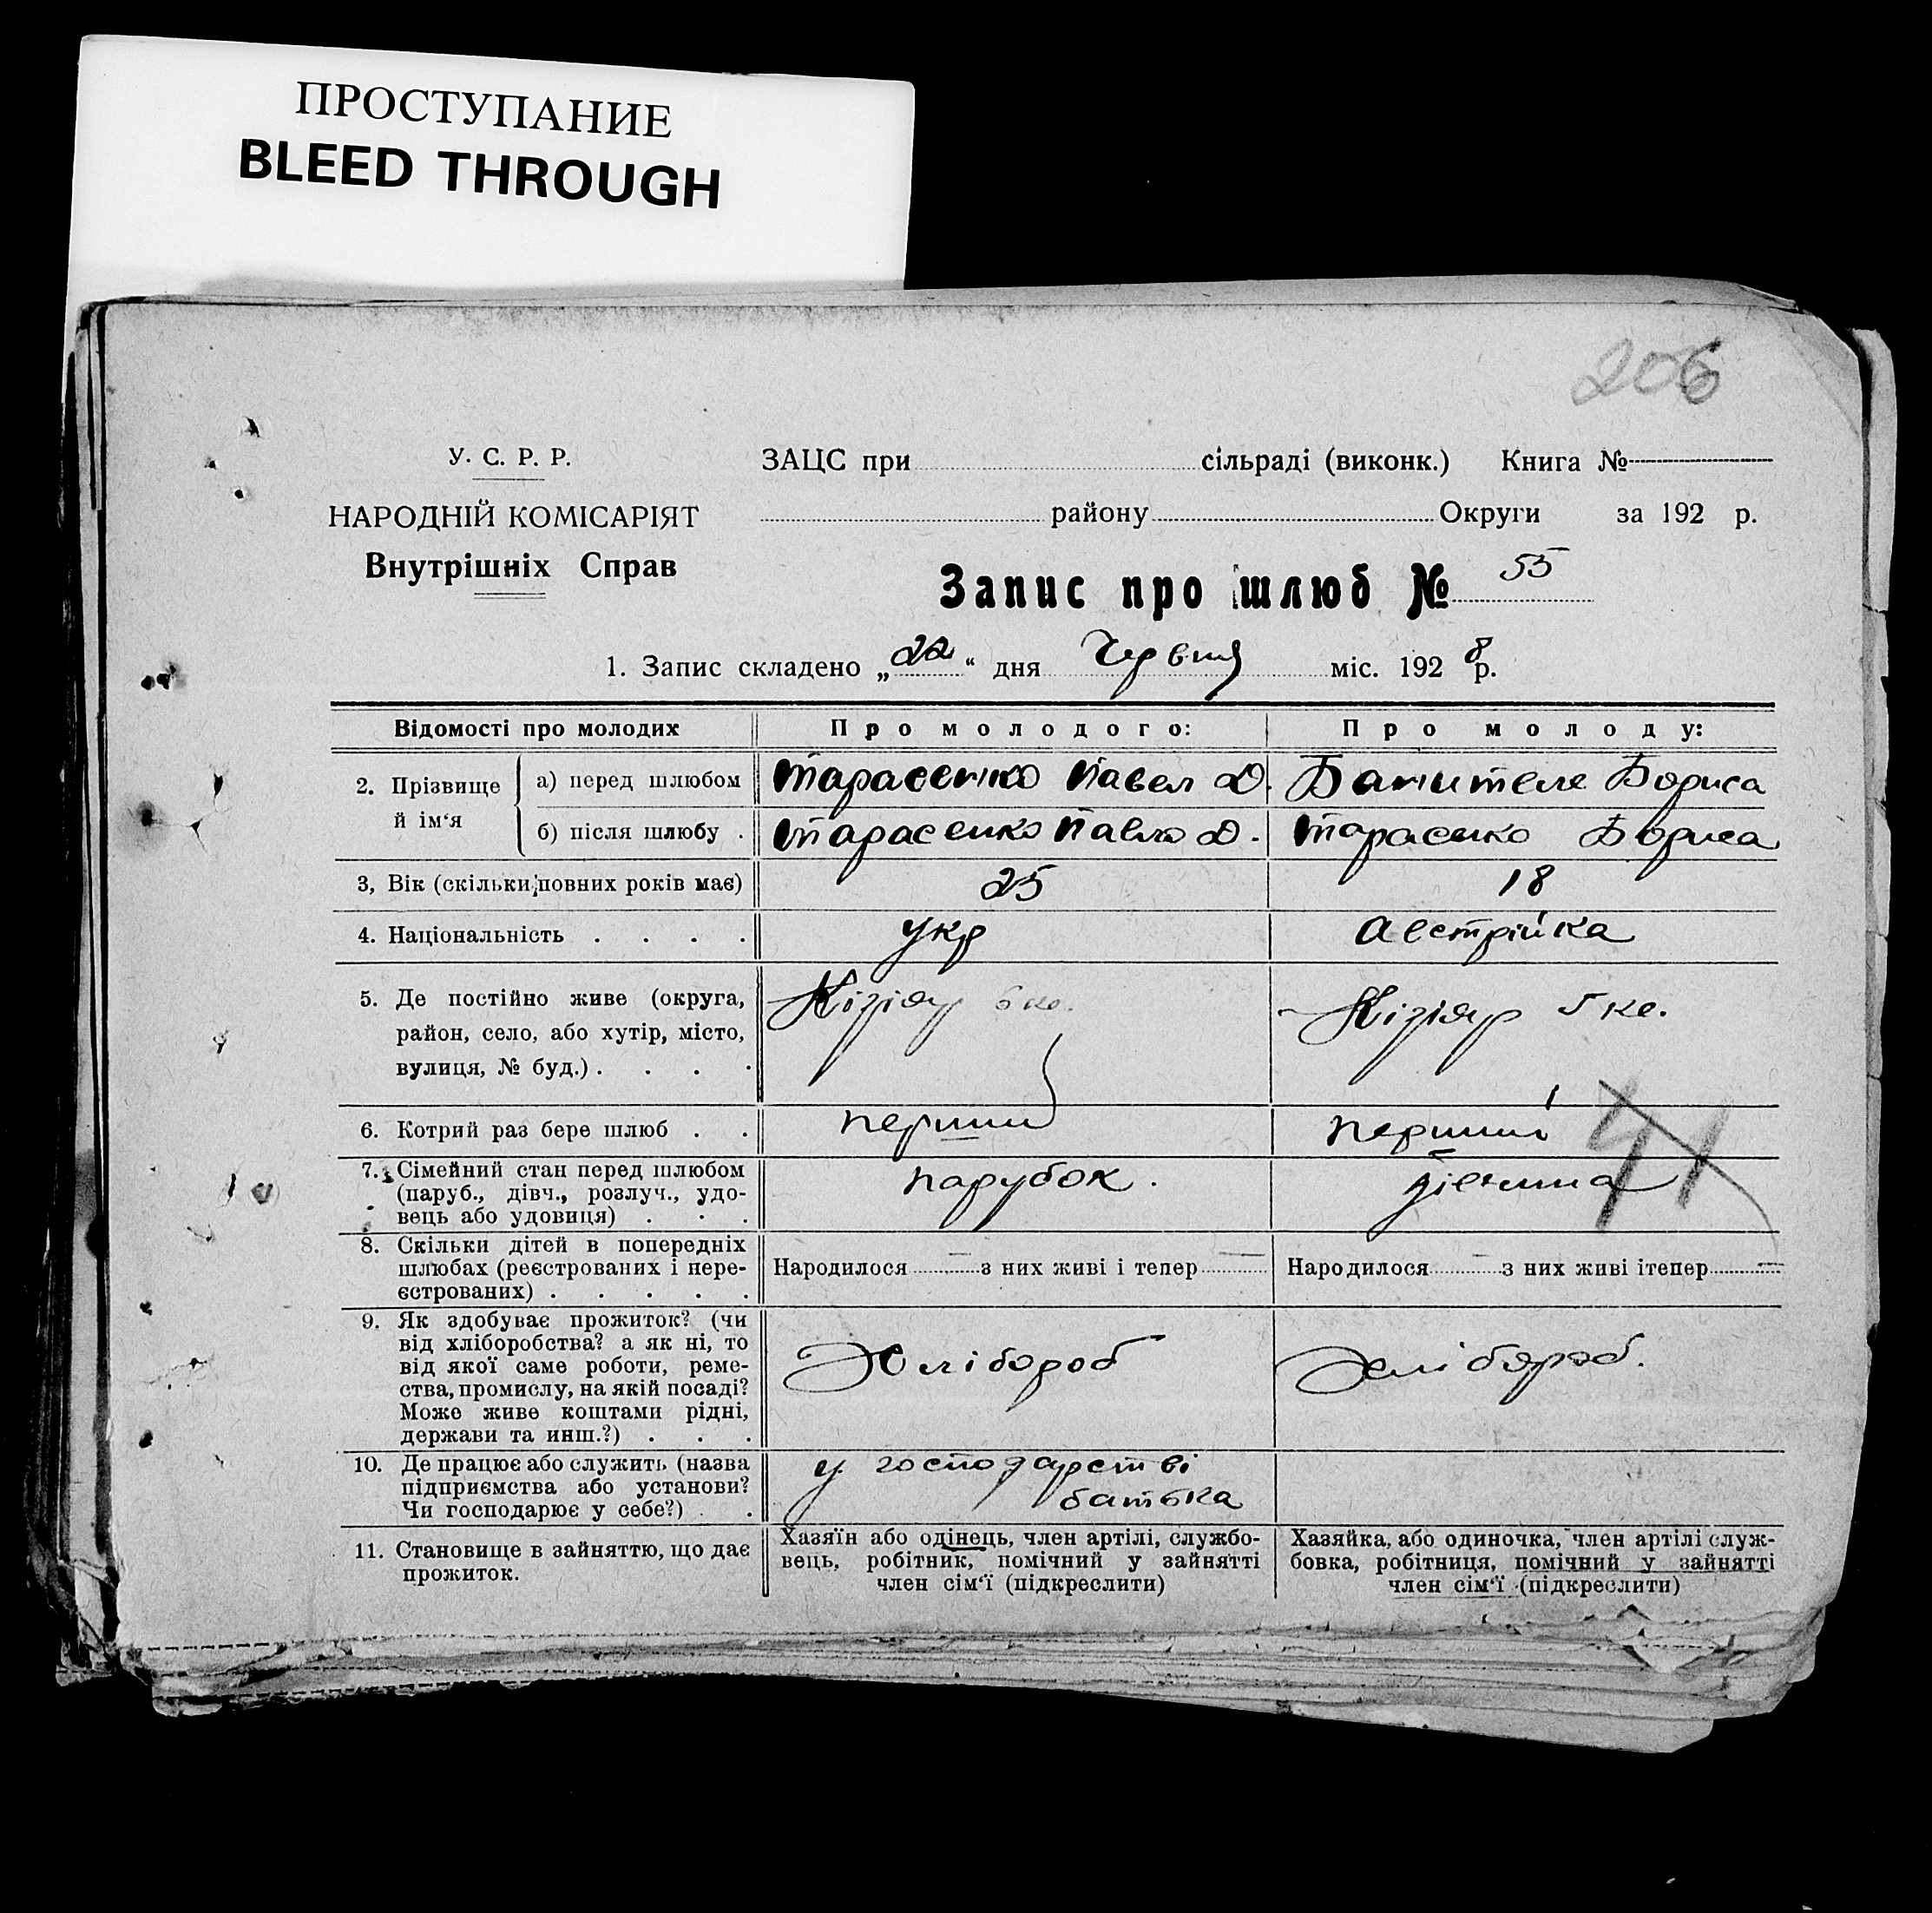 ПРОСТУПАНИЕ
BLEED THROUGH
206
У. С. Р. Р.
НАРОДНІЙ КОМІСАРІЯТ
Внутрішніх Справ
ЗАЦС при сільраді (виконк.) Книга №
району Округи за 192 р.
Запис про шлюб № 55
1. Запис складено „22“ дня Червня міс. 1928 р.
Відомості про молодих Про молодого: Про молоду:
2. Прізвище й ім‘я
а) перед шлюбом Тарасенко Павел Д. Бориса
б) після шлюбу . Тарасенко Павло Д. Тарасенко Бориса
3, Вік (скільки повних років має) 25 18
4. Національність . . . . укр Австрійка
5. Де постійно живе (округа,
район, село, або хутір, місто,
вулиця, № буд.) . . . .
Кізіяр
Кізіяр
6. Котрий раз бере шлюб . . перший перший
41
7. Сімейний стан перед шлюбом
(паруб., дівч., розлуч., удо-
вець або удовиця) . . .
парубок. дівчина
8. Скільки дітей в попередніх
шлюбах (реєстрованих і нере-
єстрованих) . . . . .
Народилося — з них живі і тепер —
Народилося — з них живі ітепер —
9. Як здобуває прожиток? (чи
від хліборобства? а як ні, то
від якої саме роботи, реме-
ства, промислу, на якій посаді?
Може живе коштами рідні,
держави та инш.?) . . .
Хлібороб Хлібороб.
10. Де працює або служить (назва
підприємства або установи?
Чи господарює у себе?) . .
у господарстві
батька
11. Становище в зайняттю, що дає
прожиток.
Хазяїн або одінець, член артілі, службо-
вець, робітник, помічний у зайнятті
член сім‘ї (підкреслити)
Хазяйка, або одиночка, член артілі служ-
бовка, робітниця, помічний у зайнятті
член сім‘ї (підкреслити)